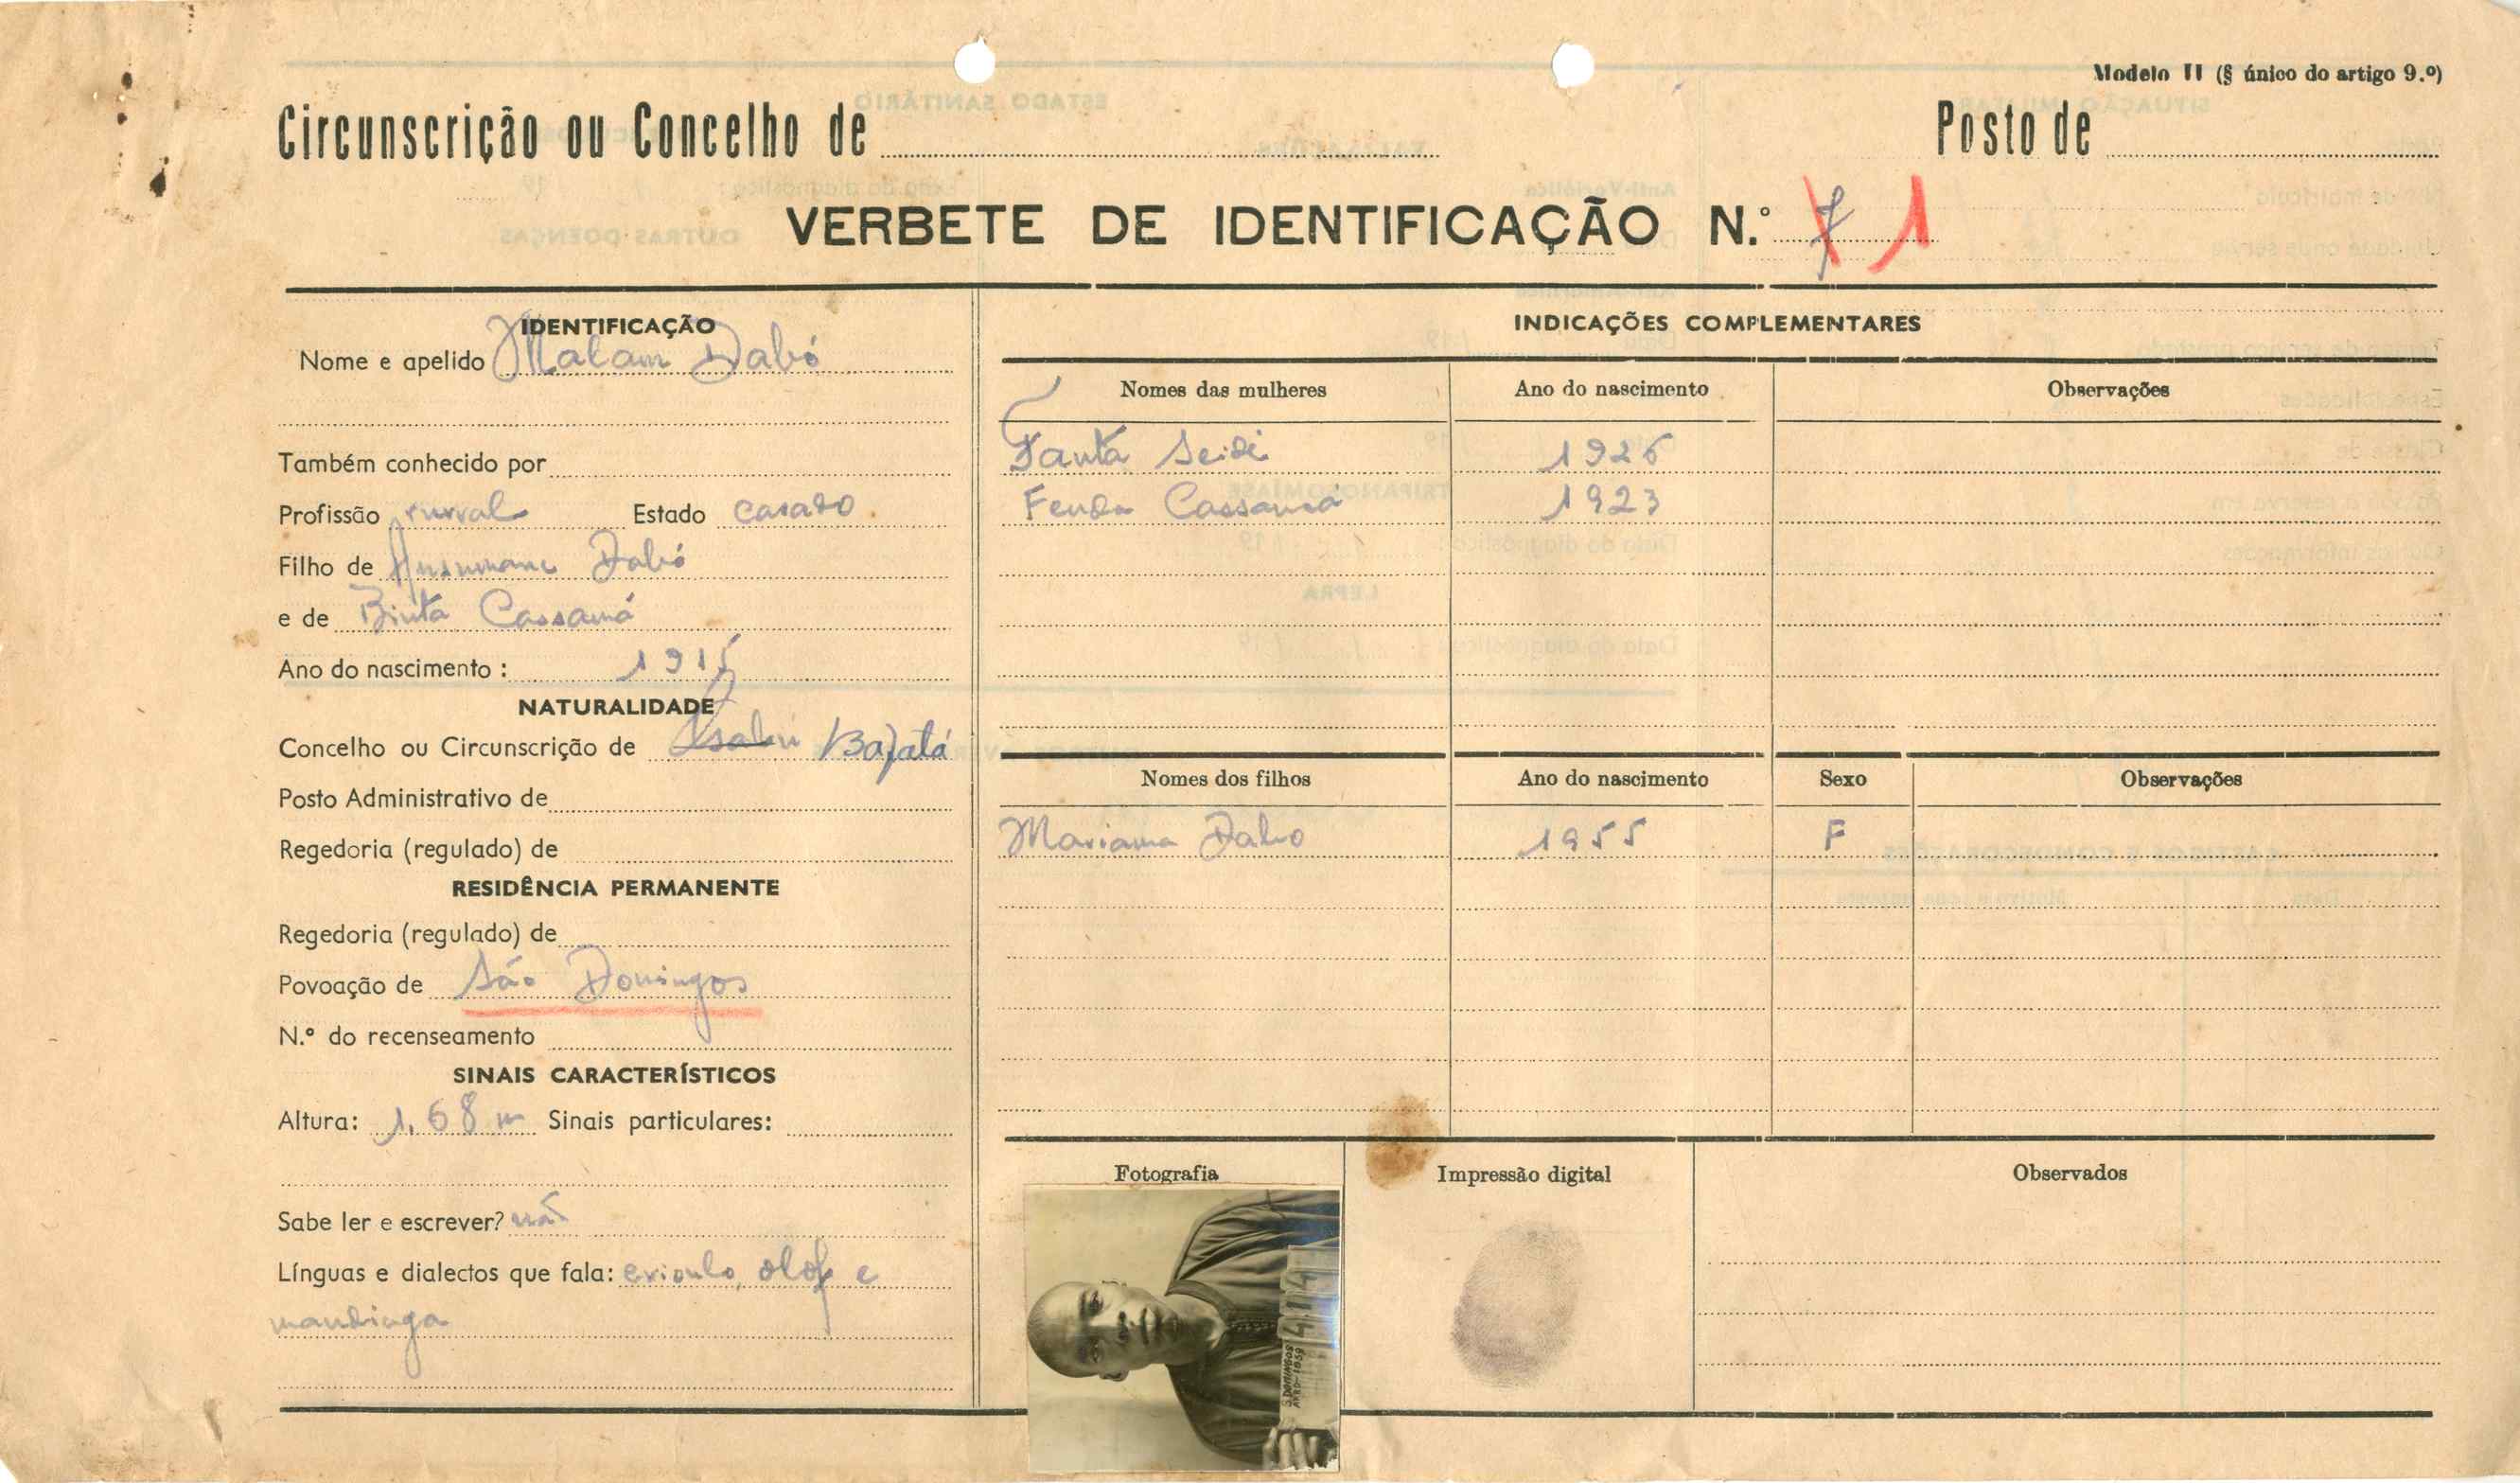 Modelo II (§ único do artigo 9.º)
Circunscrição ou Concelho de
Posto de
VERBETE DE IDENTIFICAÇÃO N.º 7 1
IDENTIFICAÇÃO
Nome e apelido Malam Dabó
Também conhecido por
Profissão rural Estado casado
Filho de Dabó
e de Binta Cassamá
Ano do nascimento : 1915
NATURALIDADE
Concelho ou Circunscrição de Bafatá
Posto Administrativo de
Regedoria (regulado) de
RESIDÊNCIA PERMANENTE
Regedoria (regulado) de
Povoação de São Domingos
N.º do recenseamento
SINAIS CARACTERÍSTICOS
Altura: 1,68 m Sinais particulares:
Sabe ler e escrever? não
Línguas e dialectos que fala: crioulo, olof e
mandinga
INDICAÇÕES COMPLEMENTARES
Nomes das mulheres Ano do nascimento Observações
Fanta Seidi 1926
Fenda Cassamá 1923
Nomes dos filhos Ano do nascimento Sexo Observações
Mariama Dabo 1955 F
Fotografia Impressão digital Observados
S. DOMINGOS